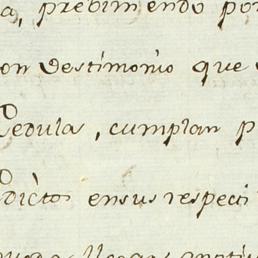 a, prebiniendo por
on Testimonio que
Cedula, cumplan p
dictos ensus respecti